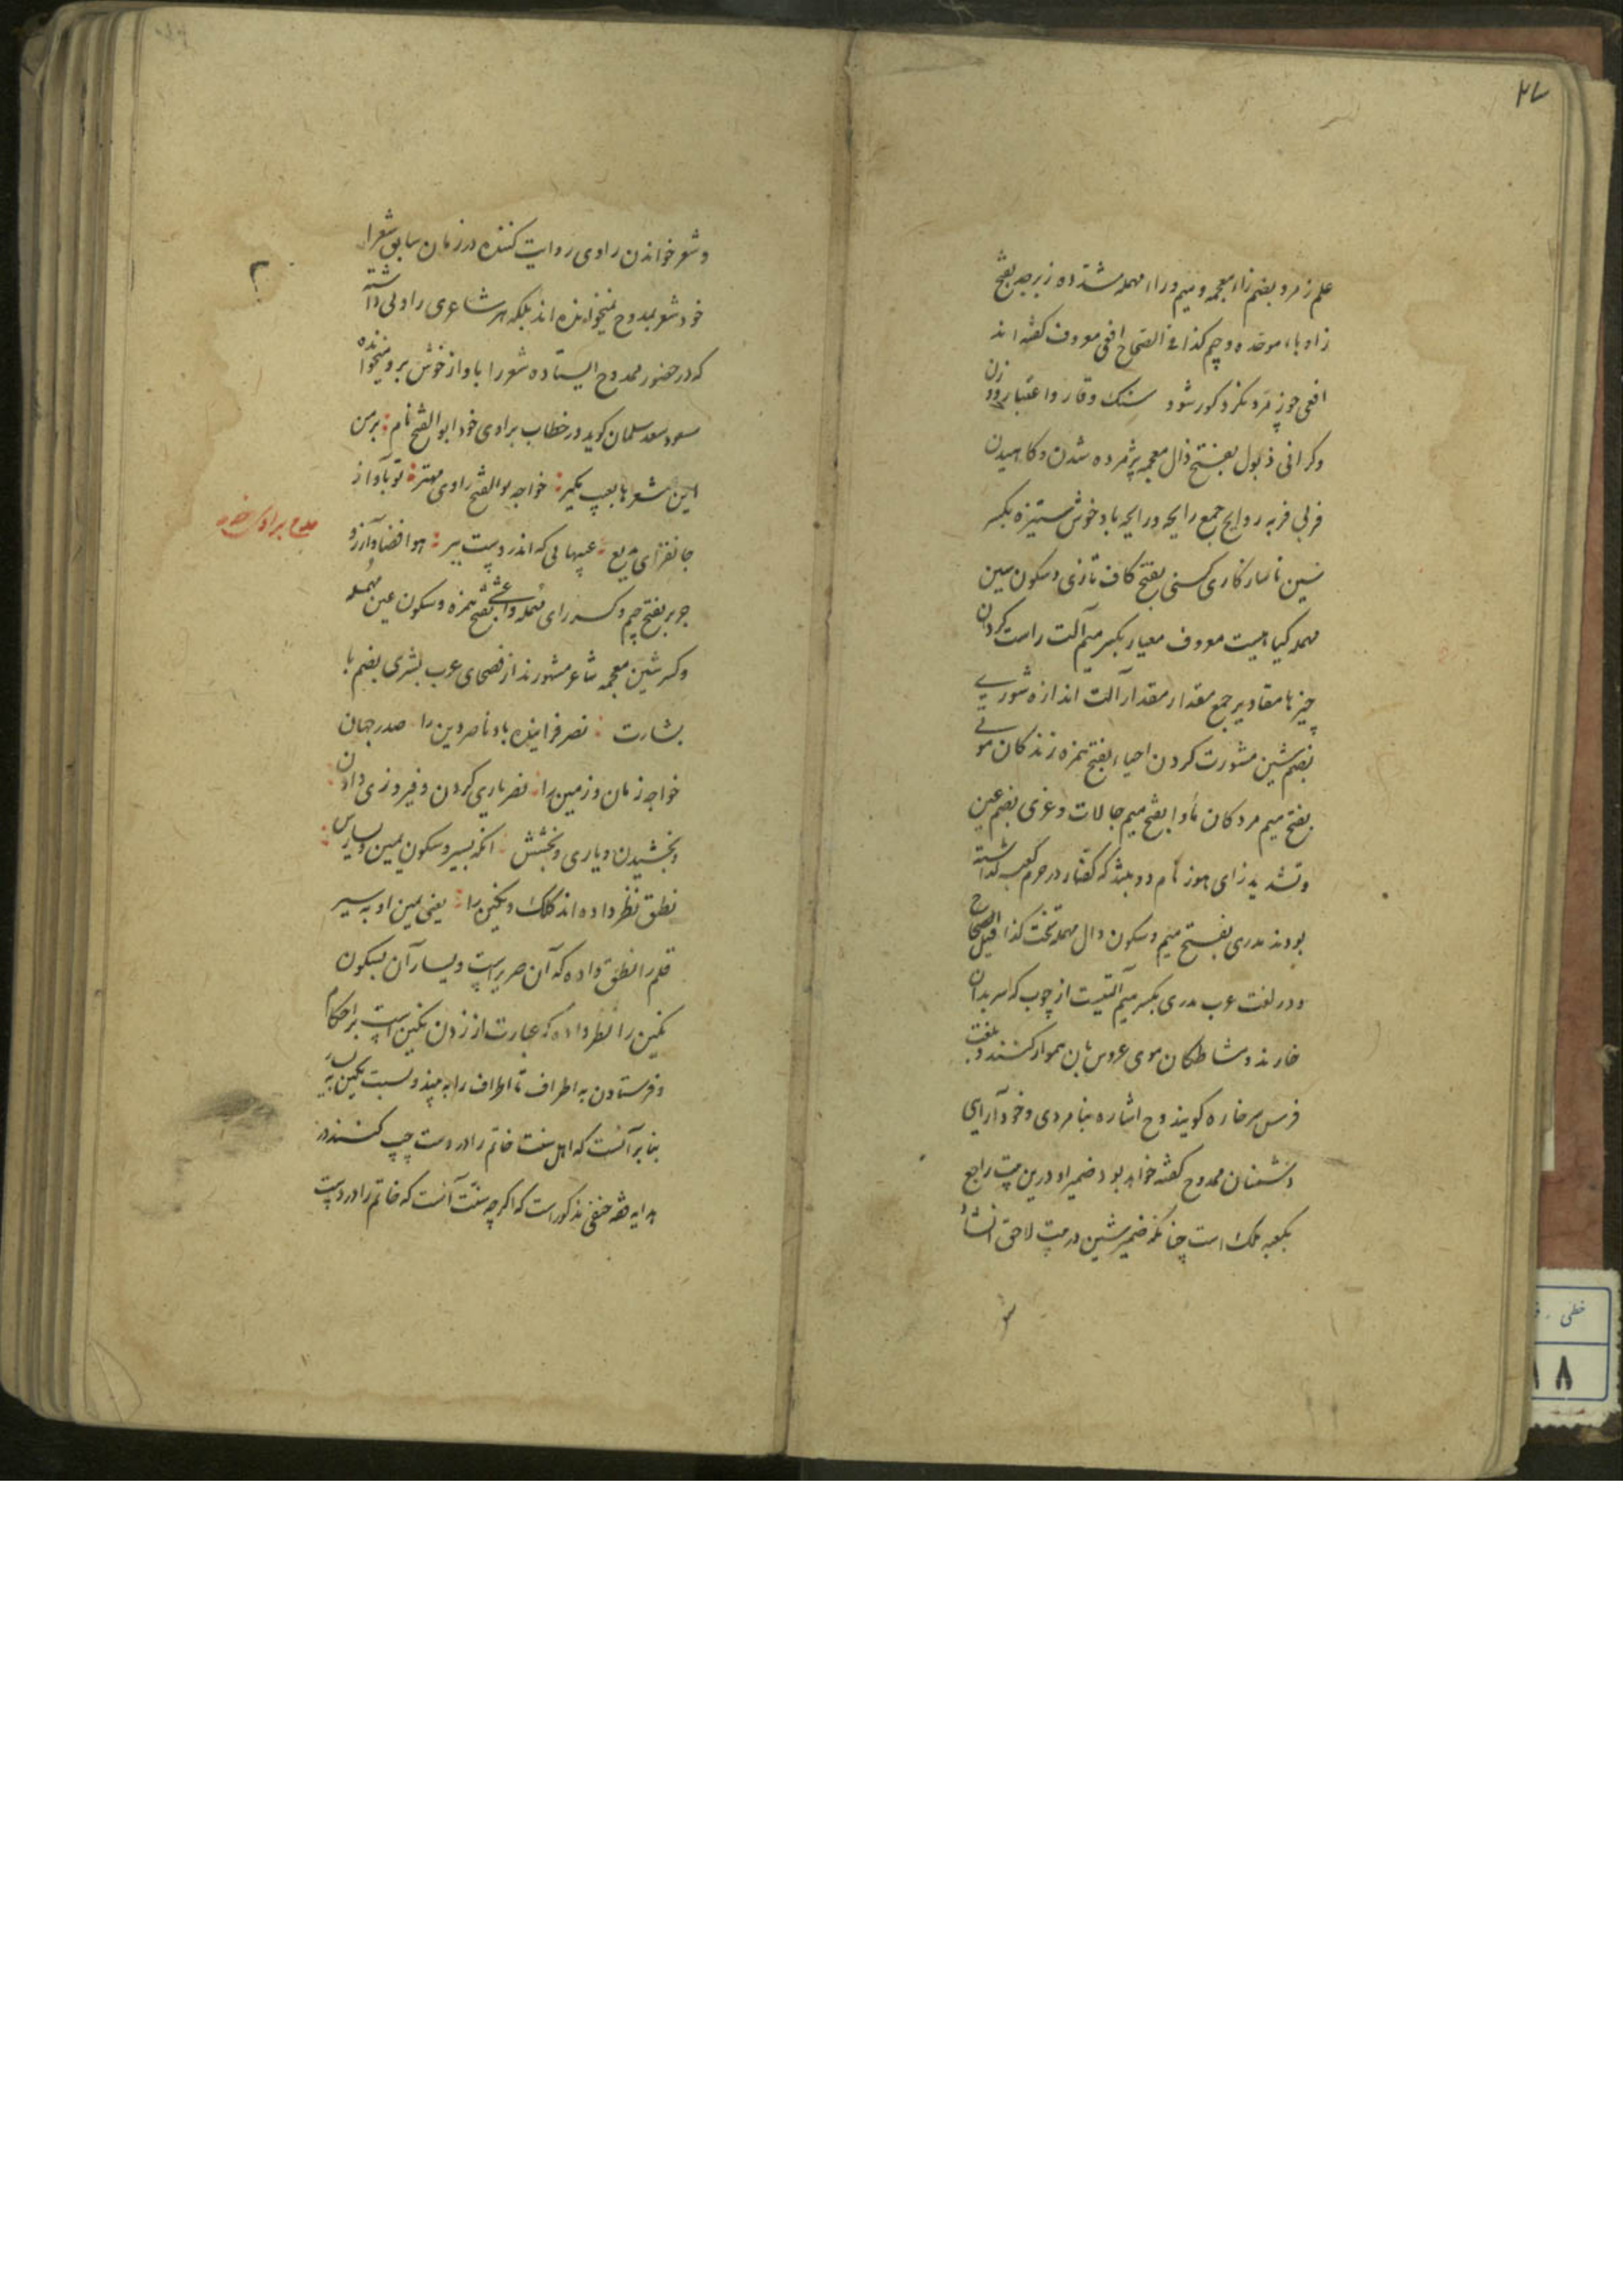 ۲۷
علم زمرد بضم زاء معجمه و میم و راء مهمله مشدده زبرجد بفتح
زا و باء موحده و جیم کذا فی الصحاح افعی معروف گفته اند
افعی چون زمرد نگرد کور شود سنگ وقار و اعتبار وزن
و گرانی ذبول بفتح ذال معجمه پژمرده شدن و کاهیدن
فربی فربه روایح جمع رایحه و رایحه باد خوش ستیزه بکسر
سین ناسازکاری کسنی بفتح کاف تازی و سکون سین
مهمله کیاهیست معروف معیار بکسر میم آلت راست کردن
چیزها مقادیر جمع مقدار مقدار آلت اندازه شوری
بضم شین مشورت کردن احیاء بفتح همزه زندکان موتی
بفتح میم مردکان ماوا بفتح میم جا لات و عزی بضم عین
و تشدید زای هوز نام دو بتند که کفار در حرم کعبه گذاشته
بودند مدری بفتح میم و سکون دال مهمله تخت کذا قیل الصحاح
و در لغت عرب مدری بکسر میم آلتیست از چوب که سر بدان
خارند و مشاطکان موی عروس بان هموار کنند و بلغت
فرس سرخاره کویند و ح اشاره بنامردی و خودآرایی
دشمنان ممدوح گفته خواهد بود ضمیر او درین بیت راجع
بکعبه ملک است چنانکه ضمیر شین در بیت لاحق انشاء
و شعر خواندن راوی روایت کننده در زمان سابق شعرا
خود شعر بمدوح نمیخوانده اند بلکه هر شاعری راوئی داشته
که در حضور ممدوح ایستاده شعر را باواز خوش برو میخوانده
مسعود سعد سلمان کوید در خطاب براوی خود ابوالفتح نام : بر من
این شعرها بعیب مکیر : خواجه بوالفتح راوی مهتر : تو بآواز
جانفزای بدیع : عیبهائی که اندر وست ببر : هوا فضا و آرزو
جریر بفتح جیم و کسر رای مهمله و اعشی بفتح همزه و سکون عین مهمله
و کسر شین معجمه شاعر مشهورند از فصحای عرب بشری بضم با
بشارت : نصر فزاینده باد ناصر دین را صدر جهان
خواجه زمان و زمین را : نصر یاری کردن و فیروزی دادن
و بخشیدن و یاری و بخشش : انکه بسیر و سکون یمین و یسارش
نطق و نظر داده اند کلک و نکین را : یعنی یمین او به سیر
قلم را نطق داده که آن صریر است و یسار آن بسکون
نکین را نظر داده که عبارت از زدن نکین است بر احکام
و فرستادن به اطراف تا اطراف را به بیند و نسبت نکین به یسار
بنابر آنست که اهل سنت خاتم را در دست چپ کنند در
هدایه فقه حنفی مذکور است که اکرچه سنت آنست که خاتم را در دست